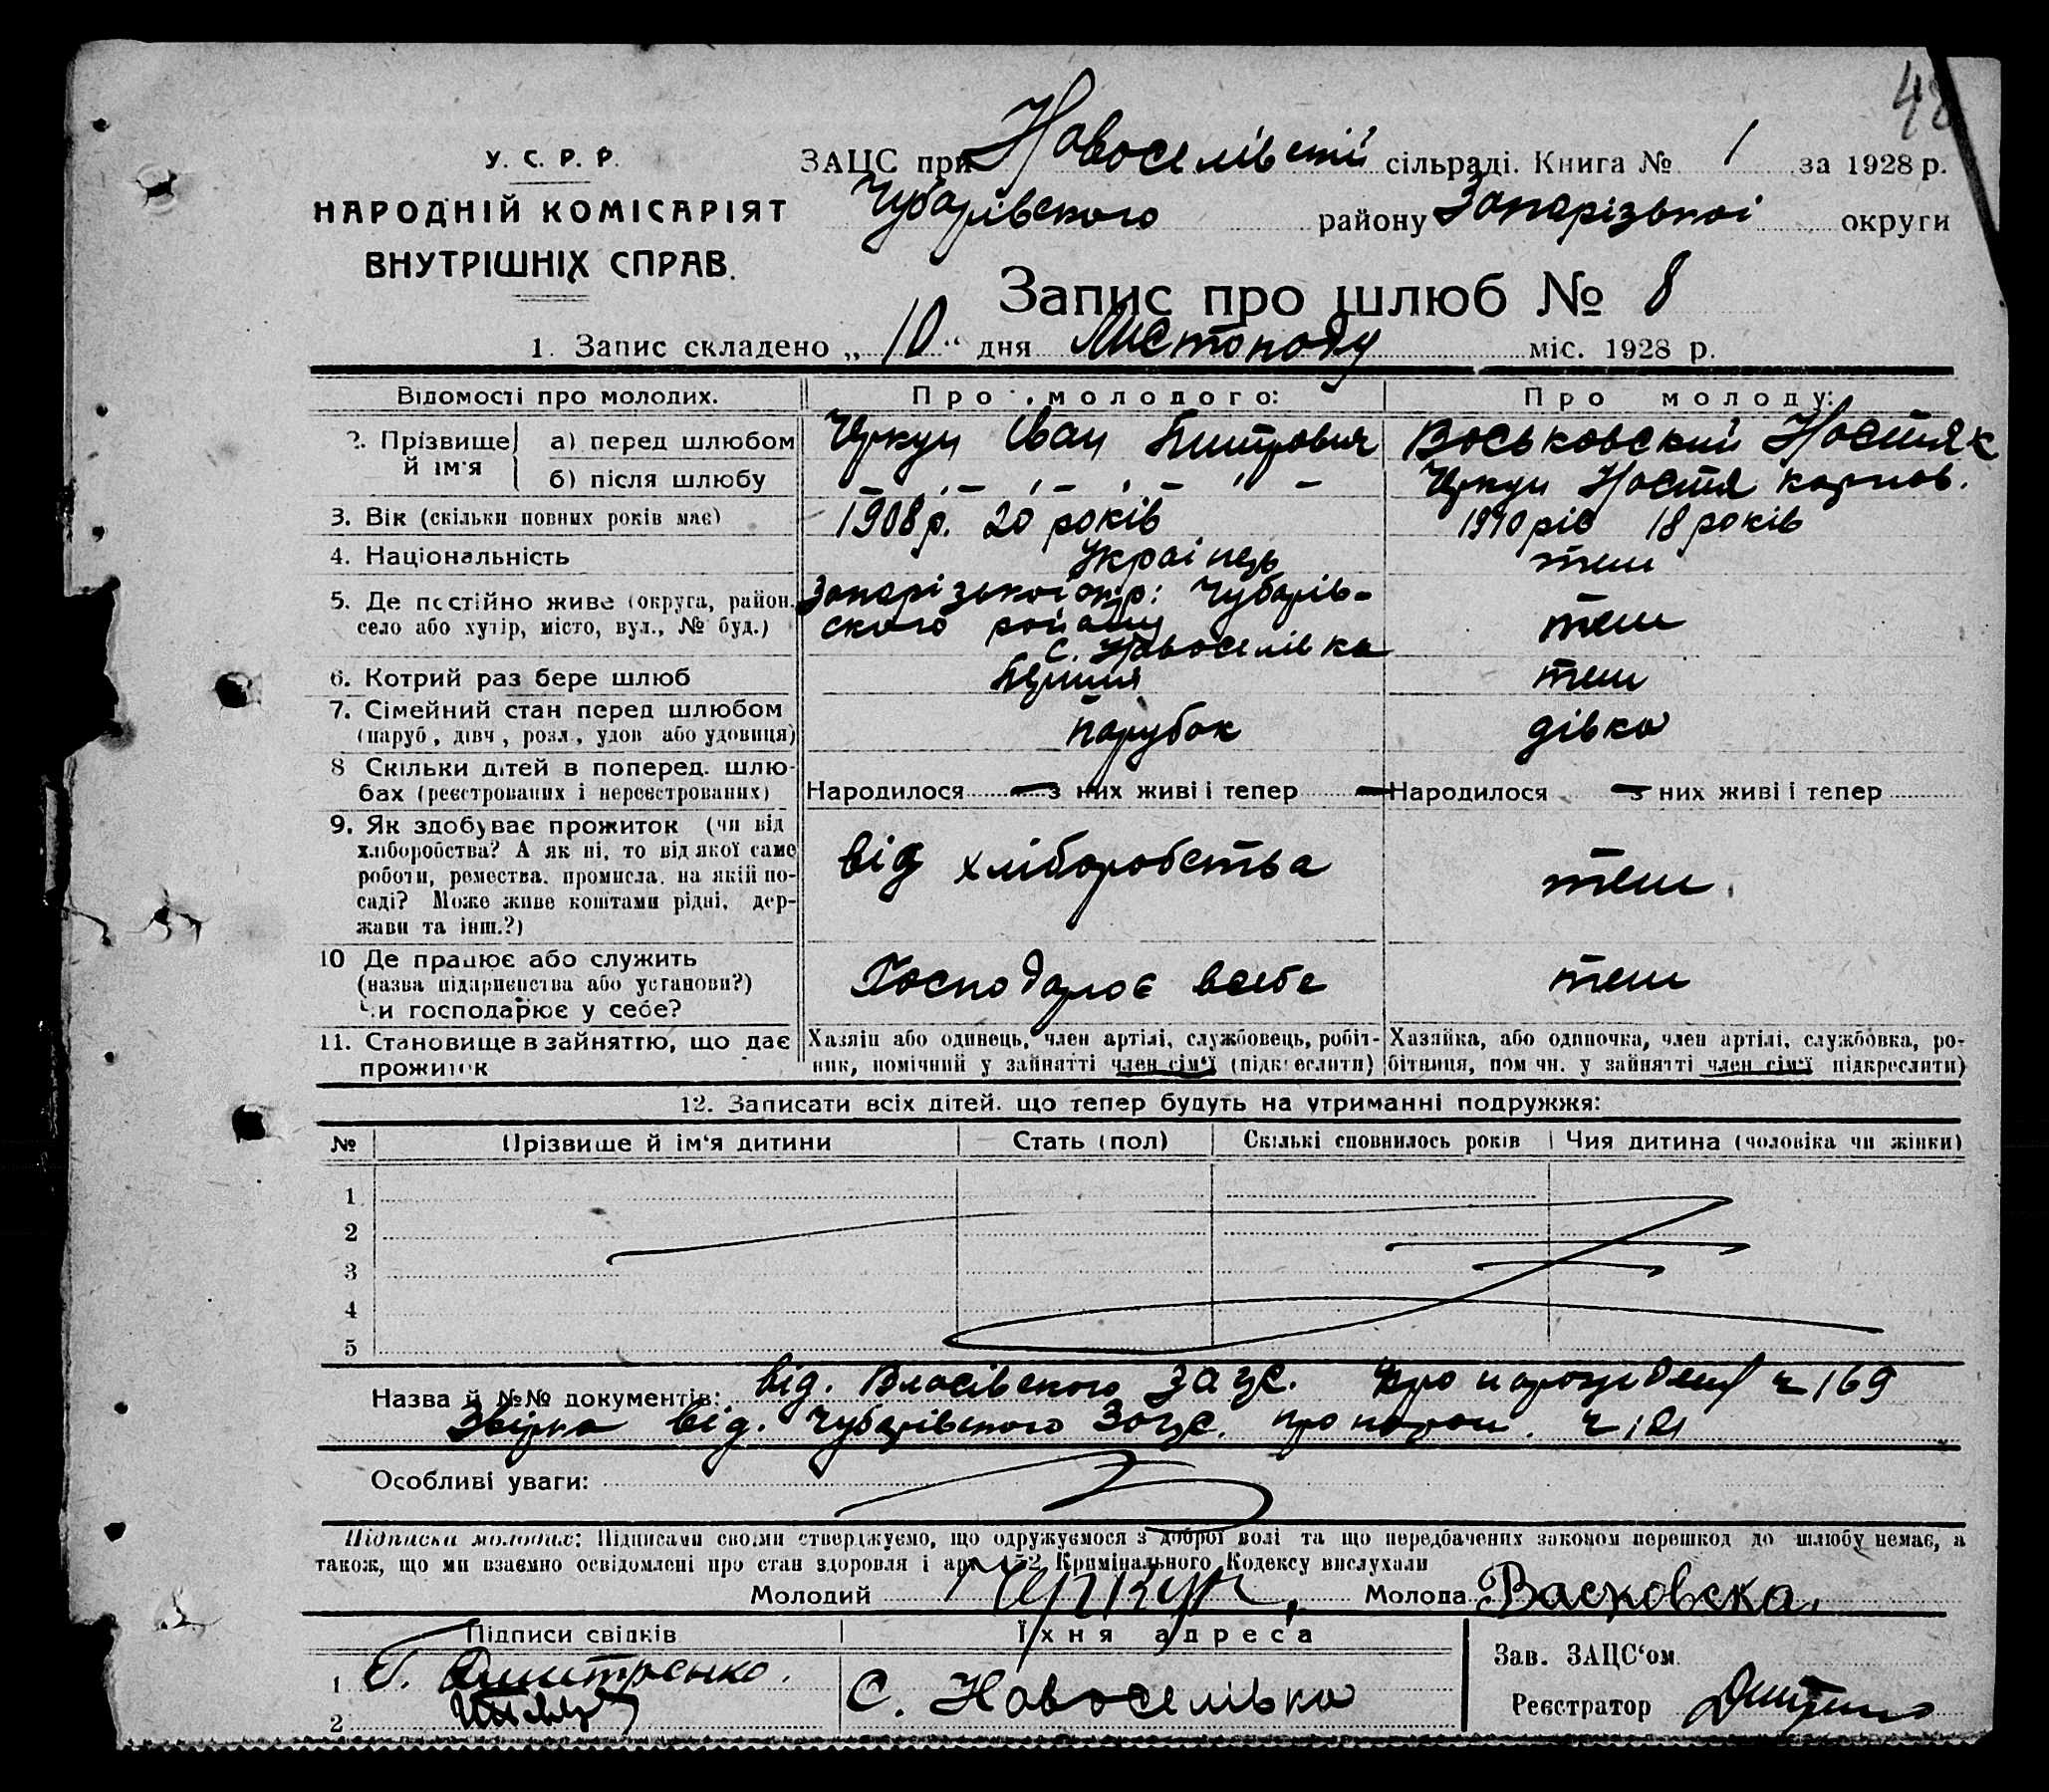 48
У. С. Р. Р.
НАРОДНІЙ КОМІСАРІЯТ
ВНУТРІШНІХ СПРАВ.
ЗАЦС при Новоселівскій сільраді. Книга № 1 за 1928 р.
Чубарівского району Запорізької округи
Запис про шлюб № 8
1. Запис складено „ 10 “ дня Листопаду міс. 1928 р.
Відомості про молодих.
Про молодого:
Про молоду:
2. Прізвище й ім'я
а) перед шлюбом
Черкун Іван Дмитрович
Воськовский Настя К
б) після шлюбу
– ‚ – ‚ – ‚ – ‚ –
Черкун Настя карпов.
3. Вік (скільки повних років має)
1908 р. 20 років
1910 ріс 18 років
4. Національність
Українець
теш
5. Де постійно живе (округа, район,
село або хутір, місто, вул., № буд.)
Запорізької окр: Чубарів-
ского району
с. Новоселівка
теш
6. Котрий раз бере шлюб
Перший
теш
7. Сімейний стан перед шлюбом
(паруб., дівч., розл., удов або удовиця)
парубок
дівка
8 Скільки дітей в поперед. шлю-
бах (реєстрованих і нереєстрованих)
Народилося — з них живі і тепер —
Народилося — з них живі і тепер
9. Як здобуває прожиток (чи від
хліборобства? А як ні, то від якої саме
роботи, ремества, промисла, на якій по-
саді? Може живе коштами рідні, дер-
жави та інш.?)
від хліборобства
теш
10 Де працює або служить
(назва підприємства або установи?)
Чи господарює у себе?
Господарює всебе
теш
11. Становище в зайняттю, що дає
прожиток
Хазяїн або одинець, член артілі, службовець, робіт-
ник, помічний у зайнятті член сім'ї (підкреслити)
Хазяйка, або одиночка, член артілі, службовка, ро-
бітниця, помічн. у зайнятті член сім'ї підкреслити)
12. Записати всіх дітей, що тепер будуть на утриманні подружжя:
№ Прізвище й ім'я дитини Стать (пол) Скількі сповнилось років Чия дитина (чоловіка чи жінки)
1
2
3
4
5
Назва й №№ документів: від. Власівского ЗАЦС. про народження ч 169
від. Чубарівского Зацс. про народж. ч
Особливі уваги:
Підписка молодих: Підписами своїми стверджуємо, що одружуємося з доброї волі та що передбачених законом перешкод до шлюбу немає, а
також, що ми взаємно освідомлені про стан здоровля і арт. 152 Кримінального Кодексу вислухали
Молодий Черкун, Молода Васковска.
Підписи свідків
Їхня адреса
Зав. ЗАЦС'ом
1 Г. Дмитренко.
2
С. Новоселівка
Реєстратор